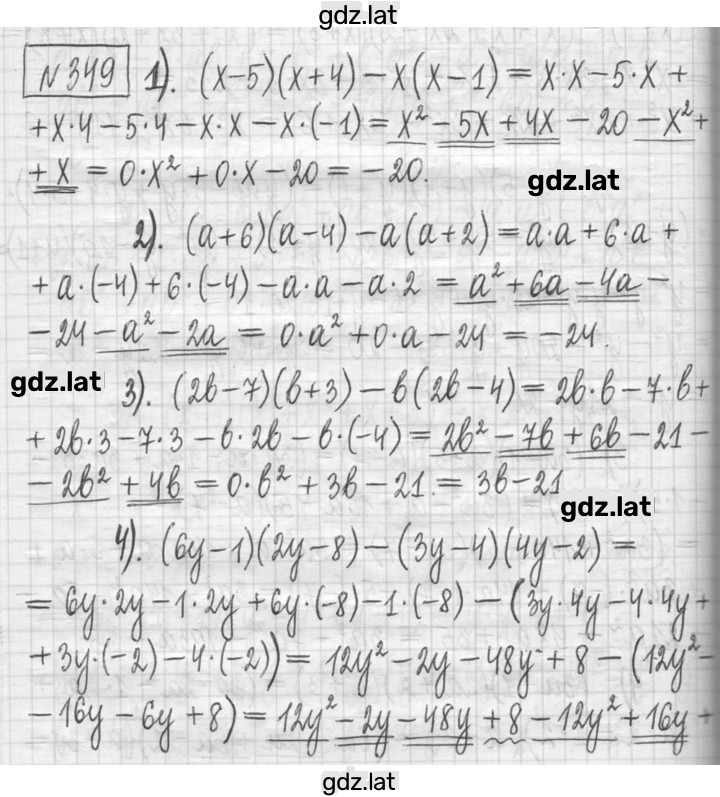 gdz.lat
№349 1). (x-5)(x+4) - x(x-1) = x·x - 5·x +
+ x·4 - 5·4 - x·x - x·(-1) = x² - 5x + 4x - 20 - x² +
+ x = 0·x² + 0·x - 20 = -20.
gdz.lat
2). (a+6)(a-4) - a(a+2) = a·a + 6·a +
+ a·(-4) + 6·(-4) - a·a - a·2 = a² + 6a - 4a -
- 24 - a² - 2a = 0·a² + 0·a - 24 = -24.
gdz.lat
3). (2b-7)(b+3) - b(2b-4) = 2b·b - 7·b +
+ 2b·3 - 7·3 - b·2b - b·(-4) = 2b² - 7b + 6b - 21 -
- 2b² + 4b = 0·b² + 3b - 21 = 3b - 21
gdz.lat
4). (6y-1)(2y-8) - (3y-4)(4y-2) =
= 6y·2y - 1·2y + 6y·(-8) - 1·(-8) - (3y·4y - 4·4y +
+ 3y·(-2) - 4·(-2)) = 12y² - 2y - 48y + 8 - (12y² -
- 16y - 6y + 8) = 12y² - 2y - 48y + 8 - 12y² + 16y +
gdz.lat